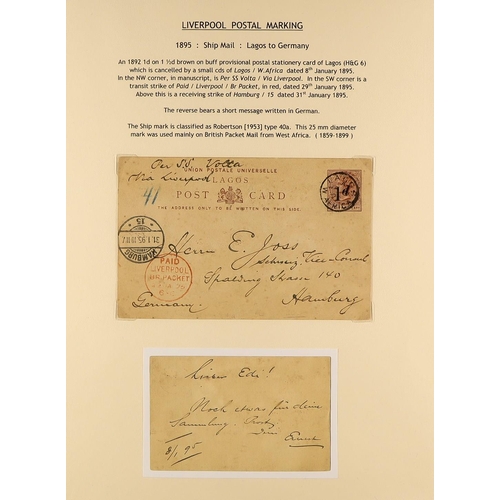 LIVERPOOL POSTAL MARKING
1895 : Ship Mail : Lagos to Germany
An 1892 1d on 1 ½d brown on buff provisional postal stationery card of Lagos (H&G 6)
which is cancelled by a small cds of Lagos / W.Africa dated 8th January 1895.
In the NW corner, in manuscript, is Per SS Volta / Via Liverpool. In the SW corner is a
transit strike of Paid / Liverpool / Br Packet, in red, dated 29th January 1895.
Above this is a receiving strike of Hamburg / 15 dated 31st January 1895.
The reverse bears a short message written in German.
The Ship mark is classified as Robertson [1953] type 40a. This 25 mm diameter
mark was used mainly on British Packet Mail from West Africa. ( 1859-1899 )
Per S.S. Volta
Via Liverpool
UNION POSTALE UNIVERSELLE
LAGOS
POST CARD
THE ADDRESS ONLY TO BE WRITTEN ON THIS SIDE.
LAGOS
1d
W. AFRICA
41
* 15 *
31.1.95
HAMBURG
PAID
LIVERPOOL
BR PACKET
Herrn E. Joss
Schweiz. Vice-Consul
Spalding Strasse 140
Hamburg
Germany.
Lieber Edi!
Noch etwas für deine
Sammlung. Prosty
Dein Ernst
8/1 95